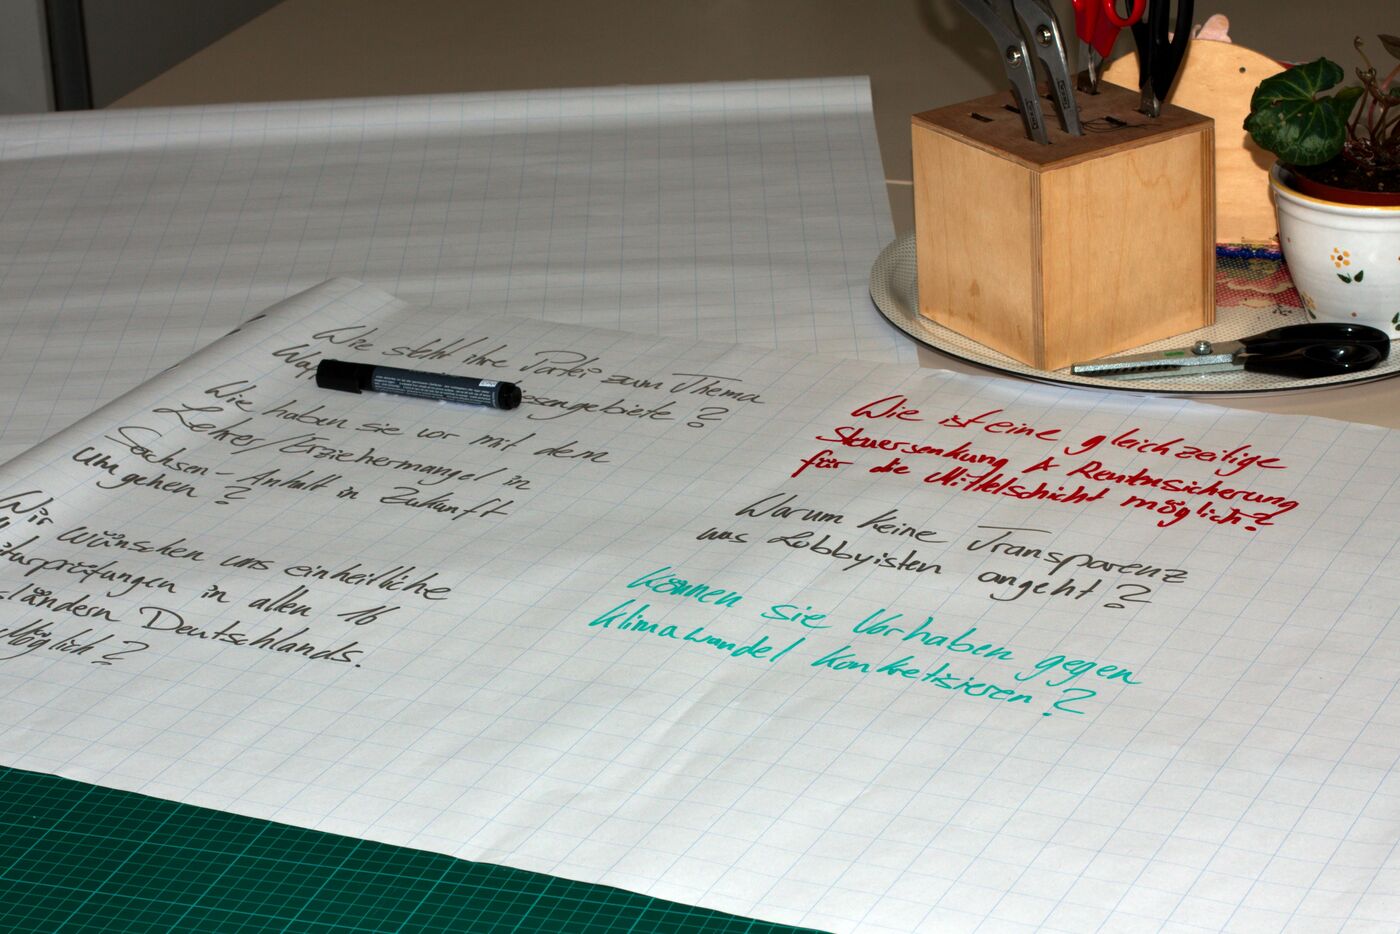 Wie steht ihre Partei zum Thema
Wa ssengebiete?
Wie haben sie vor mit dem
Lehrer/Erziehermangel in
Sachsen-Anhalt in Zukunft
um gehen?
Wir wünschen uns einheitliche
turprüfungen in allen 16
sländern Deutschlands.
Möglich?
Wie ist eine gleichzeitige
Steuersenkung & Rentensicherung
für die Mittelschicht möglich?
Warum keine Transparenz
was Lobbyisten angeht?
Können sie Vorhaben gegen
Klimawandel konkretisieren?